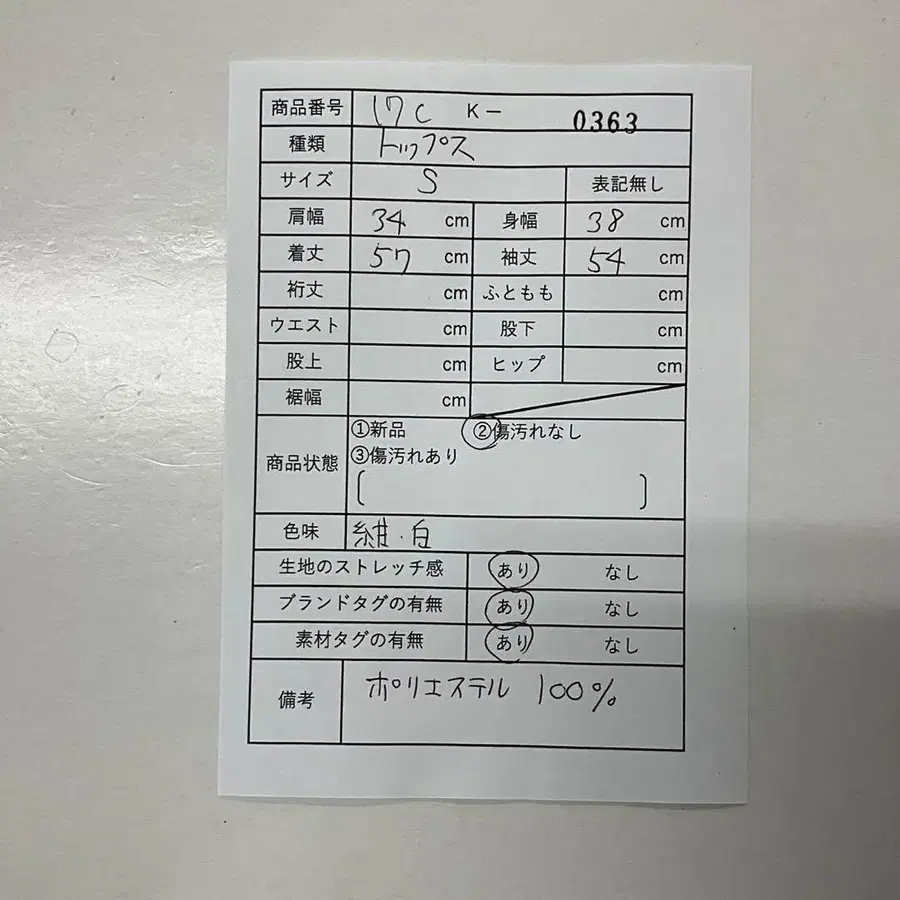 商品番号 17C K- 0363
種類 トップス
サイズ S 表記無し
肩幅 34 cm 身幅 38 cm
着丈 57 cm 袖丈 54 cm
裄丈 cm ふともも cm
ウエスト cm 股下 cm
股上 cm ヒップ cm
裾幅 cm
商品状態 ①新品 ②傷汚れなし
③傷汚れあり
色味 紺・白
生地のストレッチ感 あり なし
ブランドタグの有無 あり なし
素材タグの有無 あり なし
備考 ポリエステル 100%